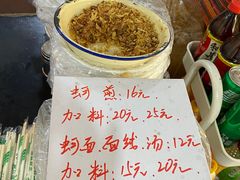 蚵煎:16元
加料:20元.25元.
蚵面.面线.汤:12元
加料:15元.20元.